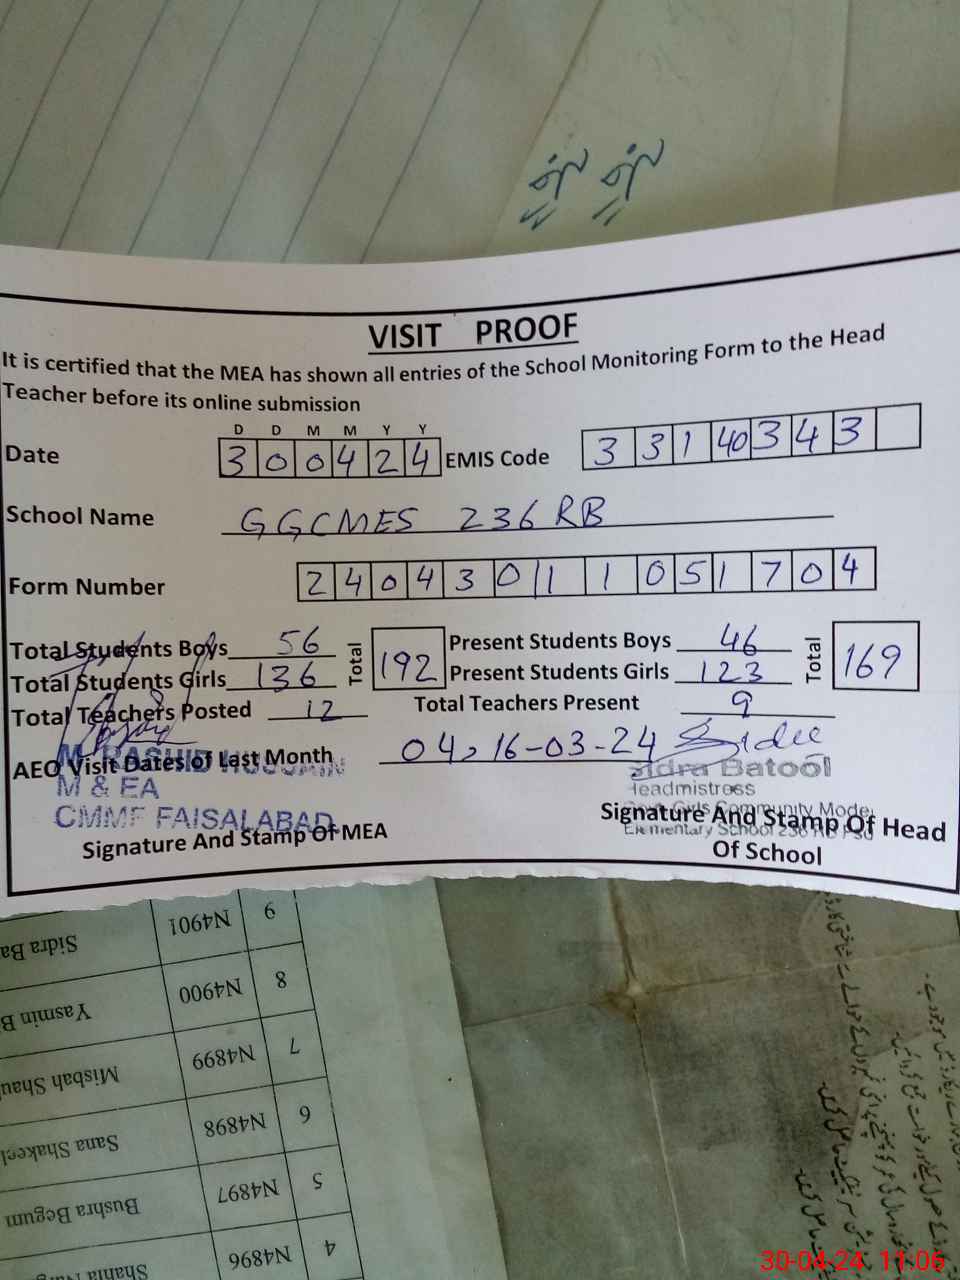 VISIT PROOF
It is certified that the MEA has shown all entries of the School Monitoring Form to the Head
Teacher before its online submission
D D M M Y Y
Date 3 0 0 4 2 4 EMIS Code 3 3 1 40 3 4 3
School Name GGCMES 236 RB
Form Number 2 4 0 4 3 0 1 1 0 5 1 7 0 4
Total Students Boys 56 Total 192 Present Students Boys 46 Total 169
Total Students Girls 136 Present Students Girls 123
Total Teachers Posted 12 Total Teachers Present 9
AEO Visit Dates of Last Month 04, 16-03-24
M. RASHID HUSSAIN
M & EA
CMMF FAISALABAD
Signature And Stamp Of MEA
Sidra Batool
Headmistress
Govt Girls Community Model
Elementary School 236 RB
Signature And Stamp Of Head
Of School
9 N4901 Sidra Ba
8 N4900 Yasmin B
7 N4899 Misbah Shau
6 N4898 Sana Shakeel
5 N4897 Bushra Begum
4 N4896 Shahia
30-04-24 11:06